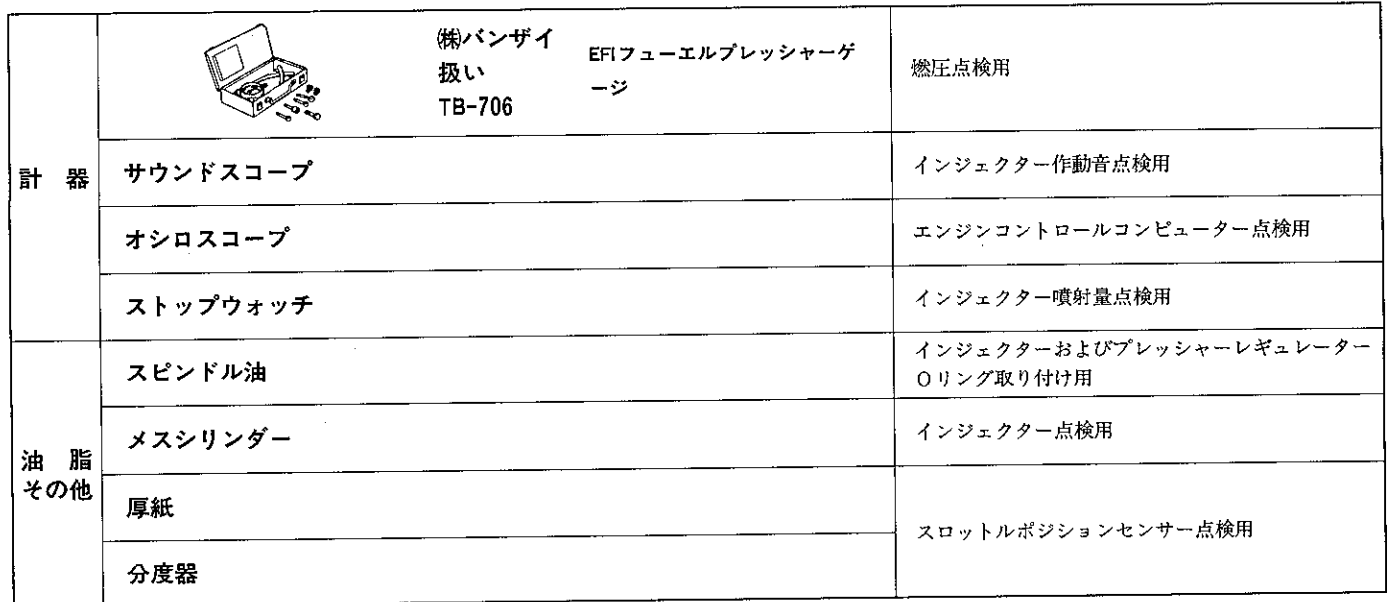 計 器
㈱バンザイ
扱い
TB-706
EFIフューエルプレッシャーゲ
ージ
燃圧点検用
サウンドスコープ
インジェクター作動音点検用
オシロスコープ
エンジンコントロールコンピューター点検用
ストップウォッチ
インジェクター噴射量点検用
油 脂
その他
スピンドル油
インジェクターおよびプレッシャーレギュレーター
Oリング取り付け用
メスシリンダー
インジェクター点検用
厚紙
分度器
スロットルポジションセンサー点検用